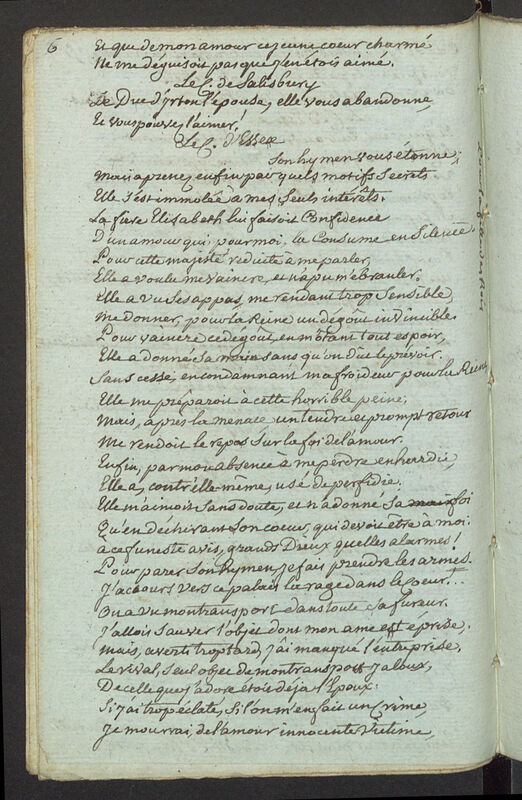 6
Et que de mon amour ce jeune coeur charmé
Ne me déguisoit pas que j'en étois aimé.
Le C. de Salisbury
Le Duc d'Irton l'épouse, elle vous abandonne,
Et vous pouvez l'aimer!
Le C. d'Essex
Son hymen vous etonne;
Mais aprenez enfin par quels motifs Secrets
Elle s'est immolée à mes Seuls intérêts.
La fiere Elisabeth lui faisoit Confidence
D'un amour qui, pour moi, la Consume en Silence.
Pour cette majesté réduite à me parler,
Elle a voulu me vaincre, et n'a pu m'ébranler.
Elle a vu Ses appas, me rendant trop Sensible,
Me donner, pour la Reine un dégoût invincible.
Pour vaincre ce dégoût, en m'ôtant tout espoir,
Elle a donné Sa main sans qu'on dût le prévoir.
Sans cesse, en condamnant ma froideur pour la Reine
Elle me préparoit à cette horrible peine;
Mais, après la menace un tendre et prompt retour
Me rendoit le repos Sur la foi de l'amour.
Enfin, par mon absence à me perdre enhardie,
Elle a, contr'elle même, usé de perfidie.
Elle m'aimoit Sans doute, et n'a donné Sa foi
Qu'en déchirant Son coeur, qui devoit etre à moi.
a ce funeste avis, grands Dieux quelles alarmes!
Pour parer Son hymen je fais prendre les armes.
J'accours vers ce palais la rage dans le coeur...
On a vu mon transport dans toute Sa fureur.
J'allois Sauver l'objet dont mon ame est eprise,
mais, averti trop tard, j'ai manqué l'entreprise.
Le rival, Seul objet de mon transport jaloux,
De celle que j'adore étoit déja l'Epoux.
Si j'ai trop éclaté, Si l'on m'en fait un Crime,
Je mourrai, de l'amour innocente Victime,